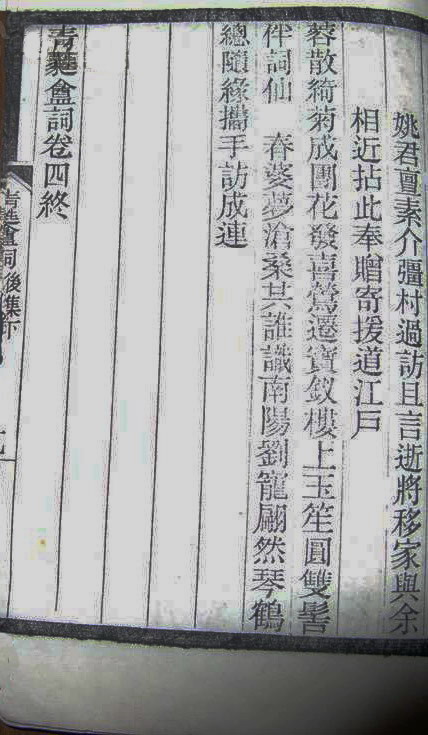 姚君亶素介彊村過訪且言逝將移家與余
相近拈此奉贈寄援道江戶
蓉散綺菊成團花發喜鶯遷寶釵樓上玉笙圓雙髻
伴詞仙　春婆夢滄桑共誰識南陽劉寵翩然琴鶴
總隨緣攜手訪成連
青蕤盦詞卷四終
青蕤盦詞後集下